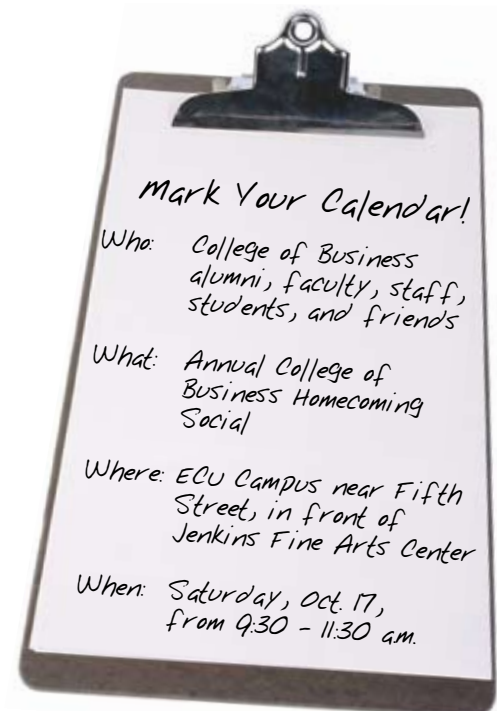 Mark Your Calendar!
Who: College of Business
alumni, faculty, staff,
students, and friends
What: Annual College of
Business Homecoming
Social
Where: ECU Campus near Fifth
Street, in front of
Jenkins Fine Arts Center
When: Saturday, Oct. 17,
from 9:30 - 11:30 a.m.